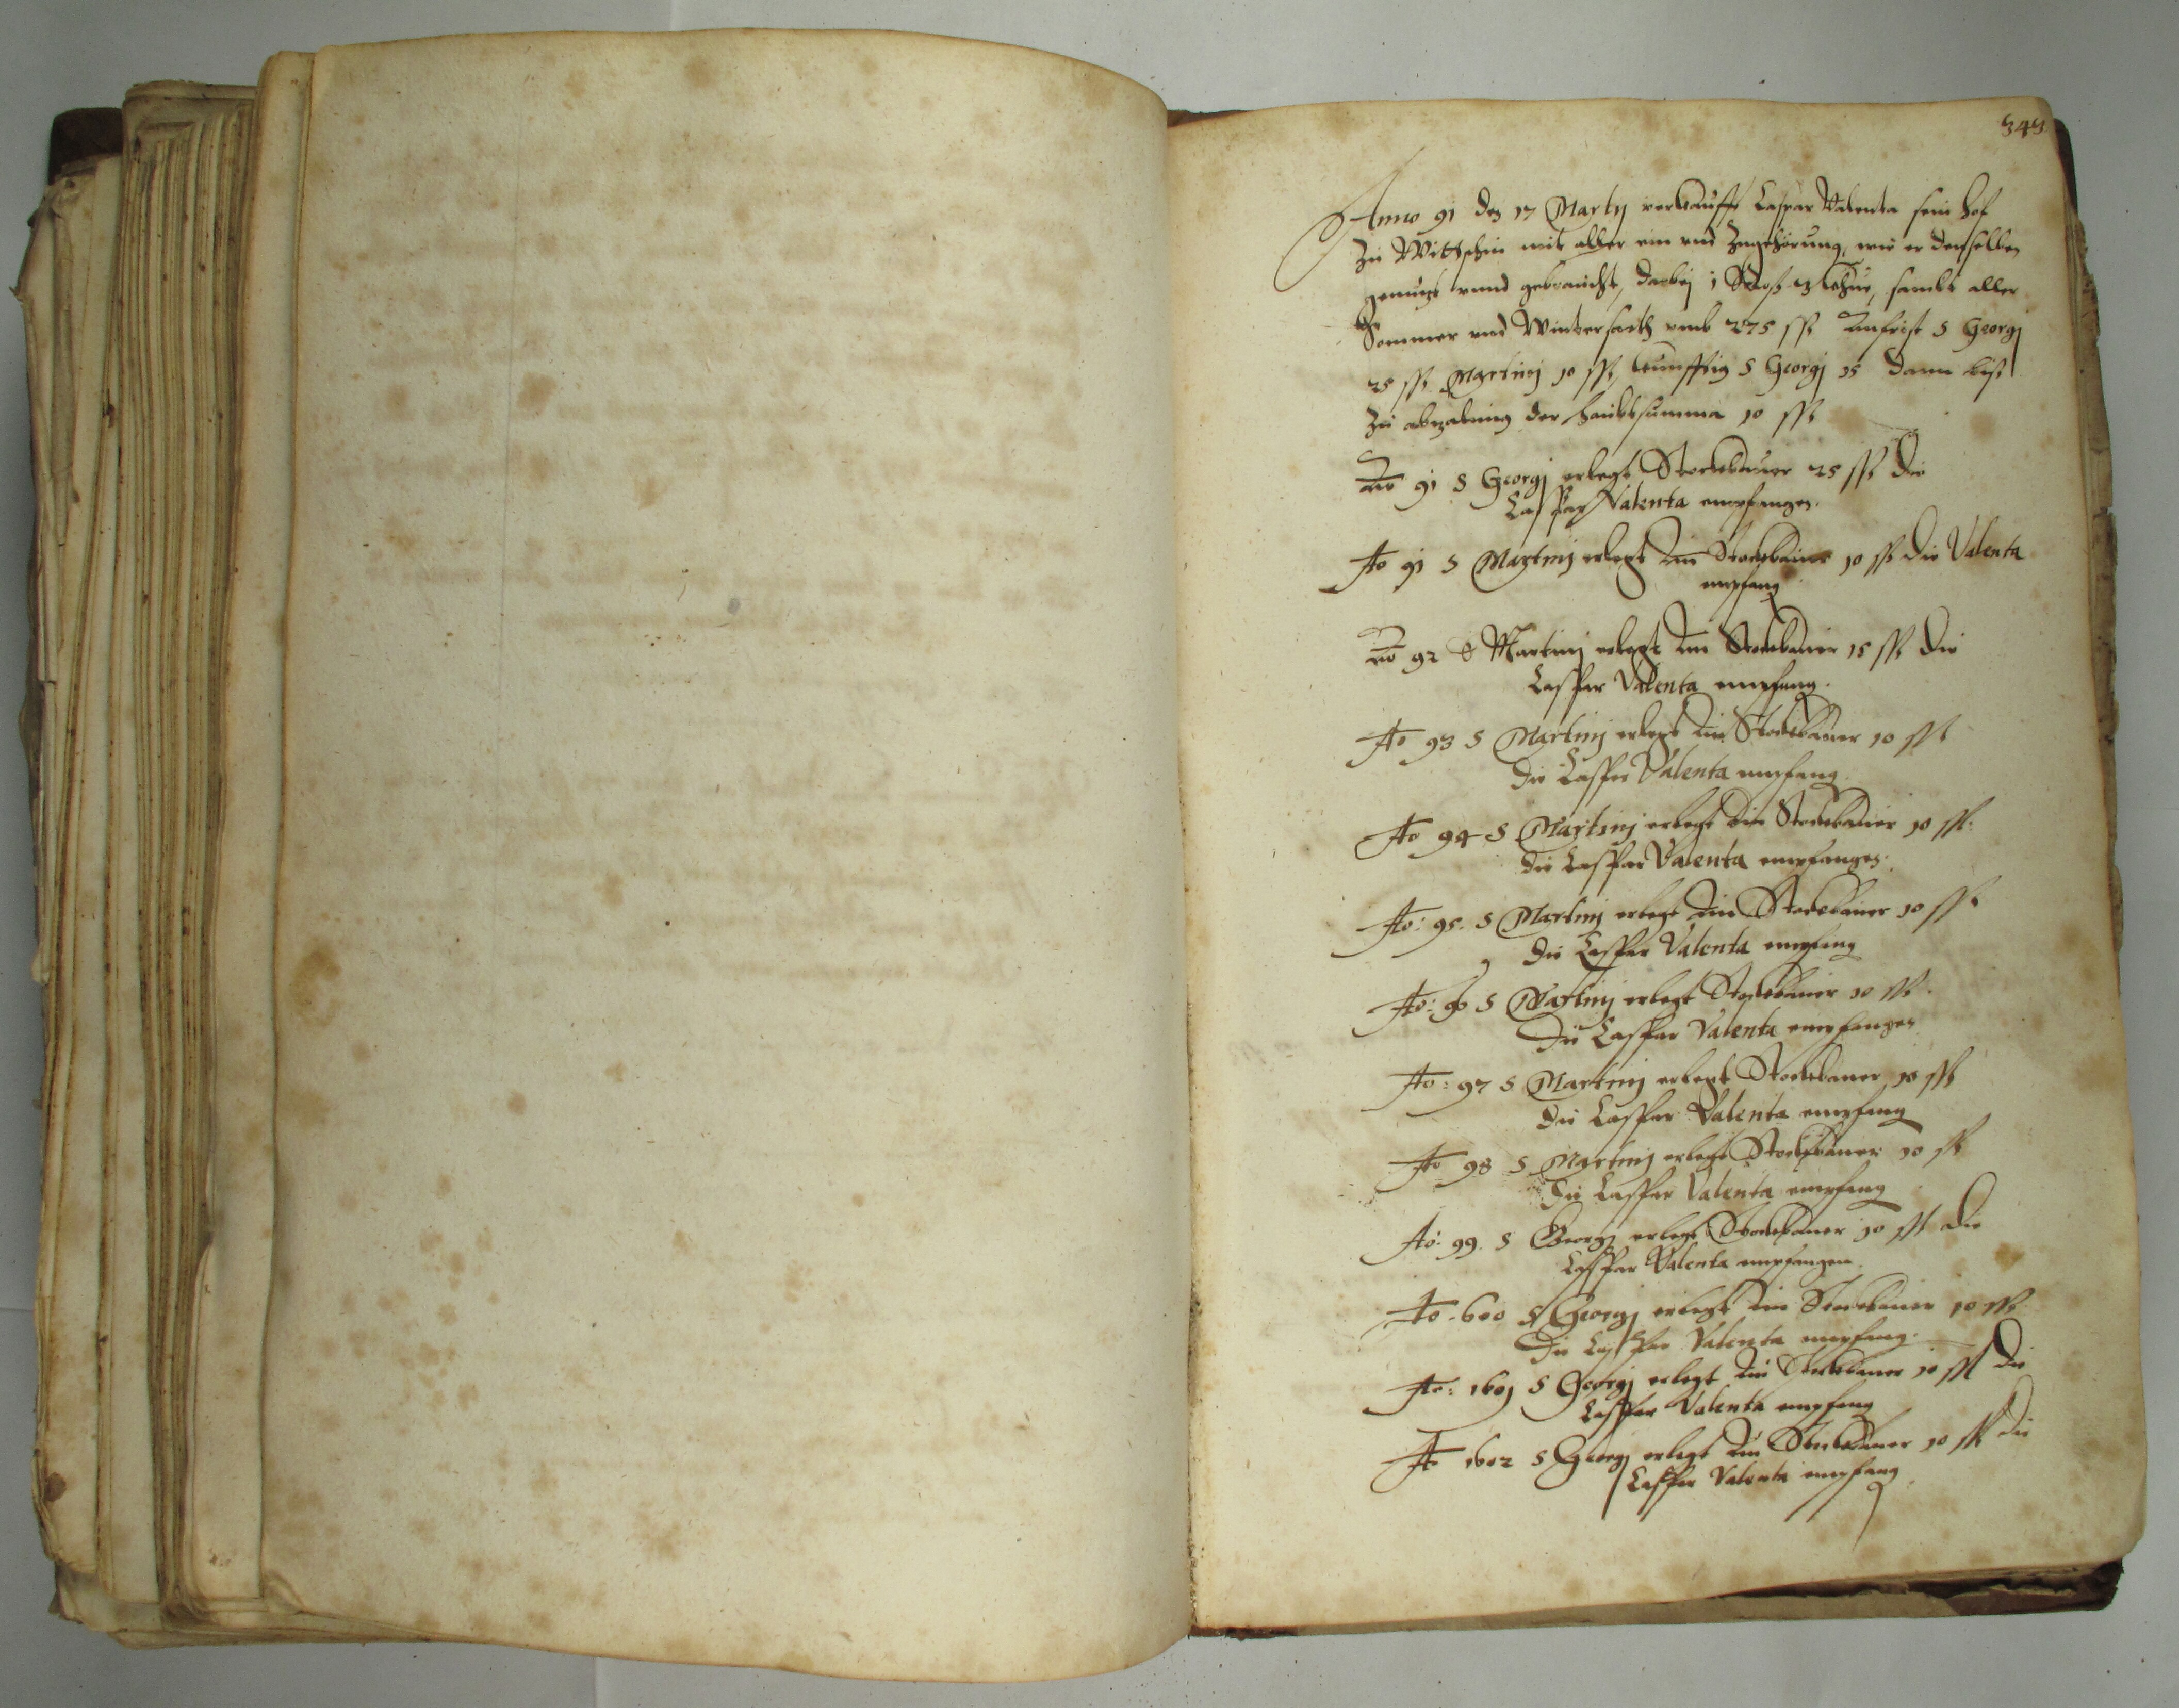 349
Anno 91 den 17 Martij verkaufft Caspar Valenta sein hof
zu Wittschin mit aller ein und Zugehörung, wie er denselben
genutzt unnd gebraucht, darbej 1 Roß 3 Khüe, sambt aller
Sommer und Wintersaeth umb 275 ss Anfrist S Georgj
25 ss Martinj 10 ss, kunfftig S Georgj 15 dann biß
zu abzalung der haubtsumma 10 ss
Ao 91 S Georgj erlegt Stockbauer 25 ss die
Casspar Valenta empfangen.
Ao 91 S Martinj erlegt Stockbauer 10 ss die Valenta
empfang
Ao 92 S Martinj erlegt Stockbauer 15 ss die
Casspar Valenta empfang.
Ao 93 S Martinj erlegt Stockbauer 10 ss
die Casspar Valenta empfang
Ao 94 S Martinj erlegt Stockbauer 10 ss.
die Casspar Valenta empfangen.
Ao: 95. S Martinj erlegt Stockbauer 10 ss
die Casspar Valenta empfang
Ao: 96 S Martinj erlegt Stockbauer 10 ss.
die Casspar Valenta empfangen
Ao: 97 S Martinj erlegt Stockbauer 10 ss
die Casspar Valenta empfang
Ao 98 S Martinj erlegt Stockbauer 10 ss
die Casspar Valenta empfang
Ao: 99. S Georgj erlegt Stockbauer 10 ss die
Casspar Valenta empfangen.
Ao. 600 S Georgj erlegt Stockbauer 10 ss
die Casspar Valenta empfang.
Ao: 1601 S Georgj erlegt Stockbauer 10 ss die
Casspar Valenta empfang
Ao 1602 S Georgj erlegt Stockbauer 10 ss die
Casspar Valenta empfang